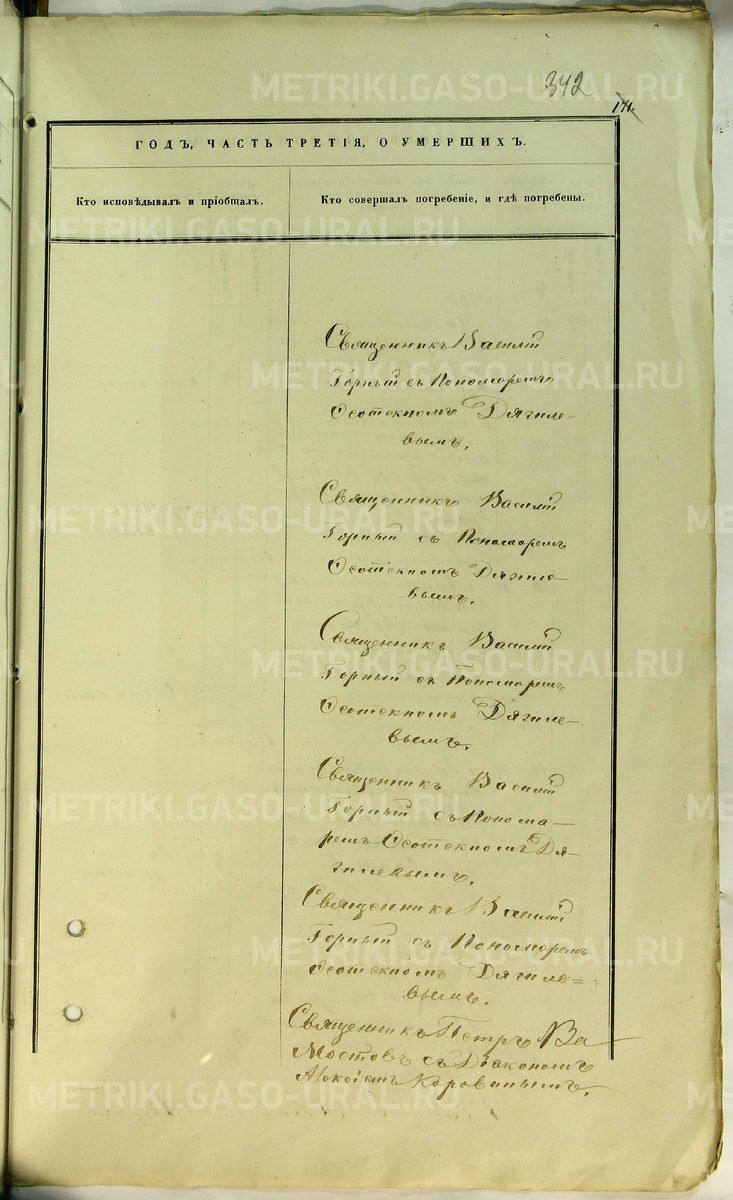 342
171.
ГОДЪ, ЧАСТЬ ТРЕТІЯ, О УМЕРШИХЪ.
Кто исповѣдывалъ и пріобщалъ.
Кто совершалъ погребеніе, и гдѣ погребены.
Священникъ Василій
Горный съ Пономаремъ
Ѳеотекномъ Дягиле-
вымъ.
Священникъ Василій
Горный съ Пономаремъ
Ѳеотекномъ Дягиле-
вымъ.
Священникъ Василій
Горный съ Пономаремъ
Ѳеотекномъ Дягиле-
вымъ.
Священникъ Василій
Горный съ Понома-
ремъ Ѳеотекномъ Дя-
гилевымъ.
Священникъ Василій
Горный съ Пономаремъ
Ѳеотекномъ Дягиле-
вымъ.
Священникъ Петръ За
Мостовъ съ Діакономъ
Коровинымъ.
METRIKI.GASO-URAL.RU